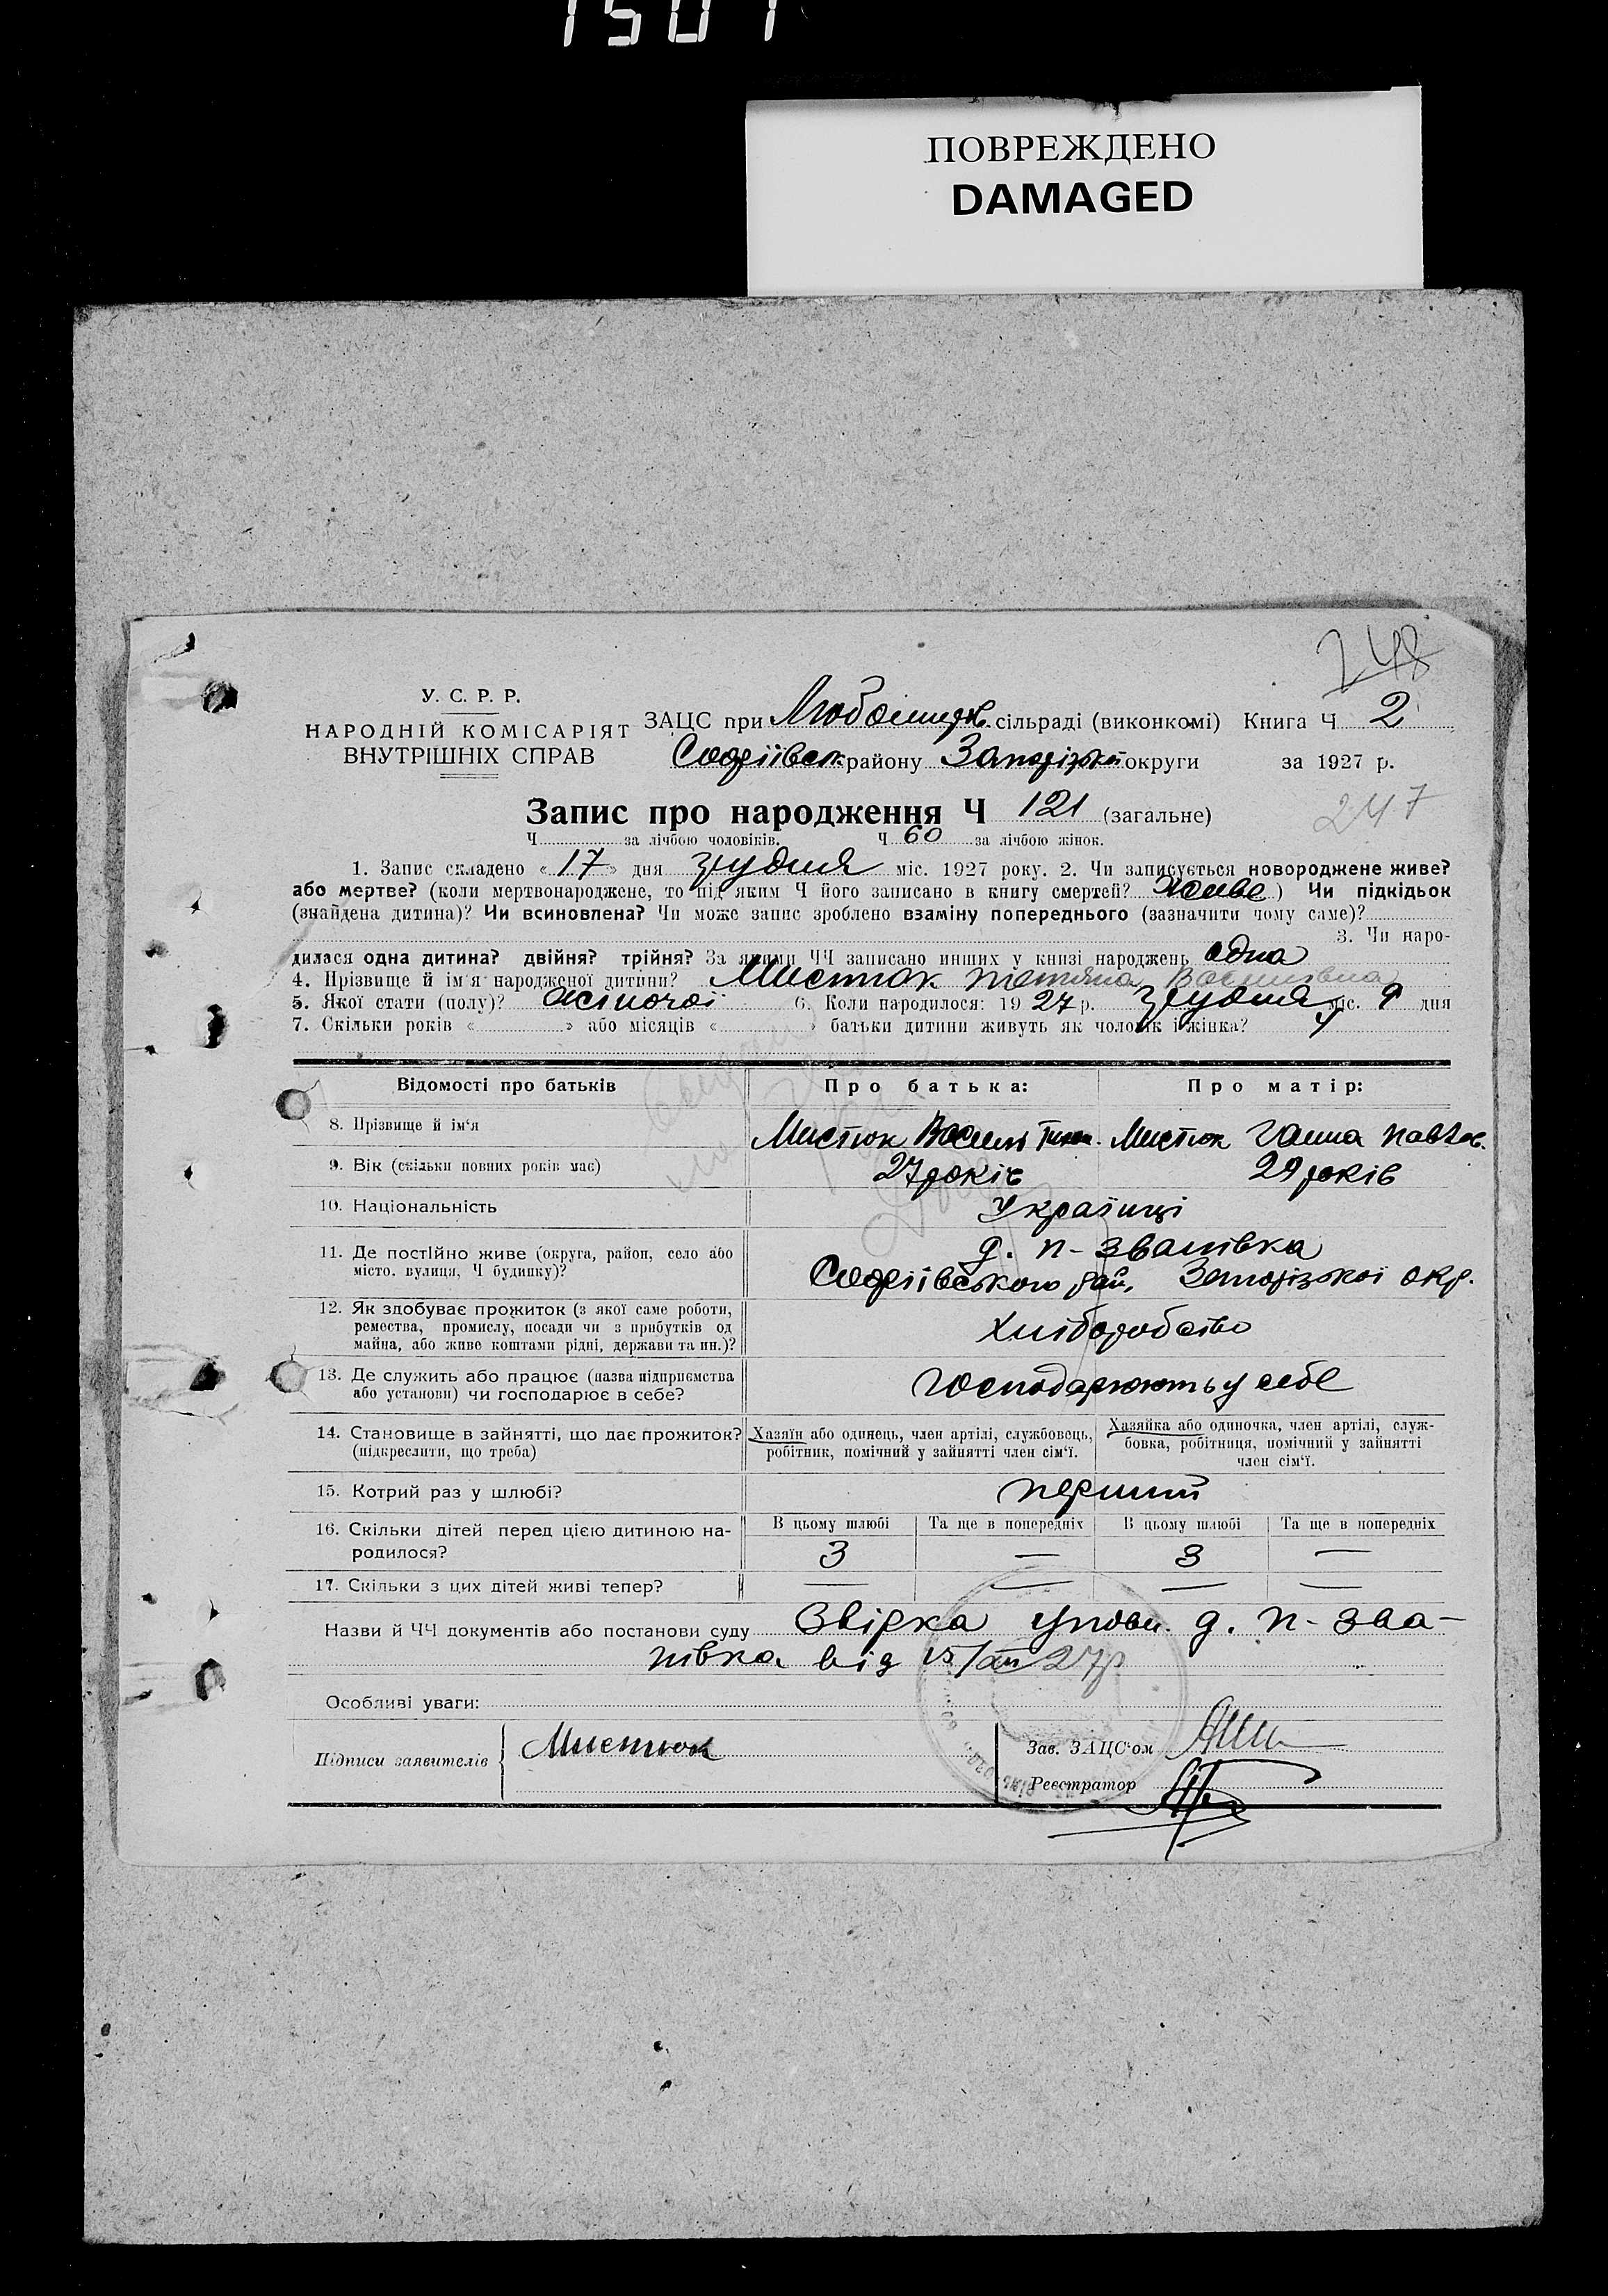 1501
ПОВРЕЖДЕНО
DAMAGED
248
У. С. Р. Р.
НАРОДНІЙ КОМІСАРІЯТ
ВНУТРІШНІХ СПРАВ
ЗАЦС при сільраді (виконкомі) Книга Ч 2
Софіївськ району Запорізької округи за 1927 р.
Запис про народження Ч 121 (загальне)
247
Ч за лічбою чоловіків. Ч 60 за лічбою жінок.
1. Запис складено «17» дня грудня міс. 1927 року. 2. Чи записується новороджене живе?
або мертве? (коли мертвонароджене, то під яким Ч його записано в книгу смертей? живе) Чи підкідьок
(знайдена дитина)? Чи всиновлена? Чи може запис зроблено взаміну попереднього (зазначити чому саме)?
3. Чи наро-
дилася одна дитина? двійня? трійня? За якими ЧЧ записано инших у книзі народжень одна
4. Прізвище й ім'я народженої дитини? Мистюк Тетяна Василівна
5. Якої стати (полу)? жіночої 6. Коли народилося: 19 27 р. грудня міс. 9 дня
7. Скільки років « » або місяців « » батьки дитини живуть як чоловік і жінка?
Відомості про батьків Про батька: Про матір:
8. Прізвище й ім'я Мистюк Василь Тим. Мистюк Ганна Павлов.
9. Вік (скільки повних років має) 27 років 29 років
10. Національність Українці
11. Де постійно живе (округа, район, село або д. п-Званівка
місто, вулиця, Ч будинку)? Софіївського рай. Запорізької окр.
12. Як здобуває прожиток (з якої саме роботи,
ремества, промислу, посади чи з прибутків од хліборобство
майна, або живе коштами рідні, держави та ин.)?
13. Де служить або працює (назва підприємства господарюють у себе
або установи) чи господарює в себе?
14. Становище в зайнятті, що дає прожиток? Хазяїн або одинець, член артілі, службовець, Хазяйка або одиночка, член артілі, служ-
(підкреслити, що треба) робітник, помічний у зайнятті член сім'ї. бовка, робітниця, помічний у зайнятті
член сім'ї.
15. Котрий раз у шлюбі? перший
16. Скільки дітей перед цією дитиною на- В цьому шлюбі Та ще в попередніх В цьому шлюбі Та ще в попередніх
родилося? 3 — 3 —
17. Скільки з цих дітей живі тепер? — — — —
Назви й ЧЧ документів або постанови суду Звірка уповн. д. п-Зва-
нівка від 15/XII 27р
Особливі уваги:
Підписи заявителів Мистюк Зав. ЗАЦС'ом
Реєстратор